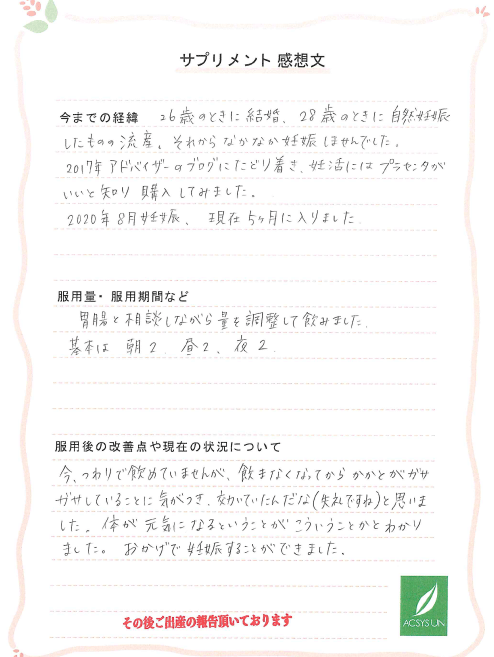 サプリメント 感想文
今までの経緯 26歳のときに結婚、28歳のときに自然妊娠
したものの流産。それからなかなか妊娠しませんでした。
2017年アドバイザーのブログにたどり着き、妊活にはプラセンタが
いいと知り購入してみました。
2020年8月妊娠、現在5ヶ月に入りました
服用量・服用期間など
胃腸と相談しながら量を調整して飲みました.
基本は 朝2. 昼2. 夜2.
服用後の改善点や現在の状況について
今、つわりで飲めていませんが、飲まなくなってからかかとがガサ
ガサしていることに気がつき、効いていたんだな(失礼ですね)と思いま
した。体が元気になるということがこういうことかとわかり
ました。おかげで妊娠することができました。
その後ご出産の報告頂いております
ACSYS UN